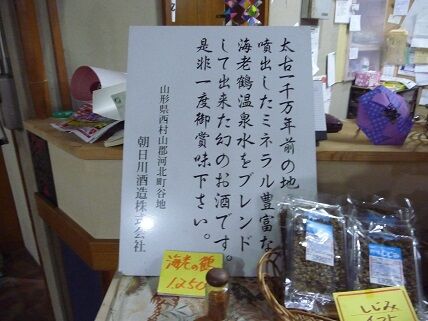 太古一千万年前の地
噴出したミネラル豊富な
海老鶴温泉水をブレンド
して出来た幻のお酒です。
是非一度御賞味下さい。
山形県西村山郡河北町谷地
朝日川酒造株式会社
海老の鶴
1250
しじみ